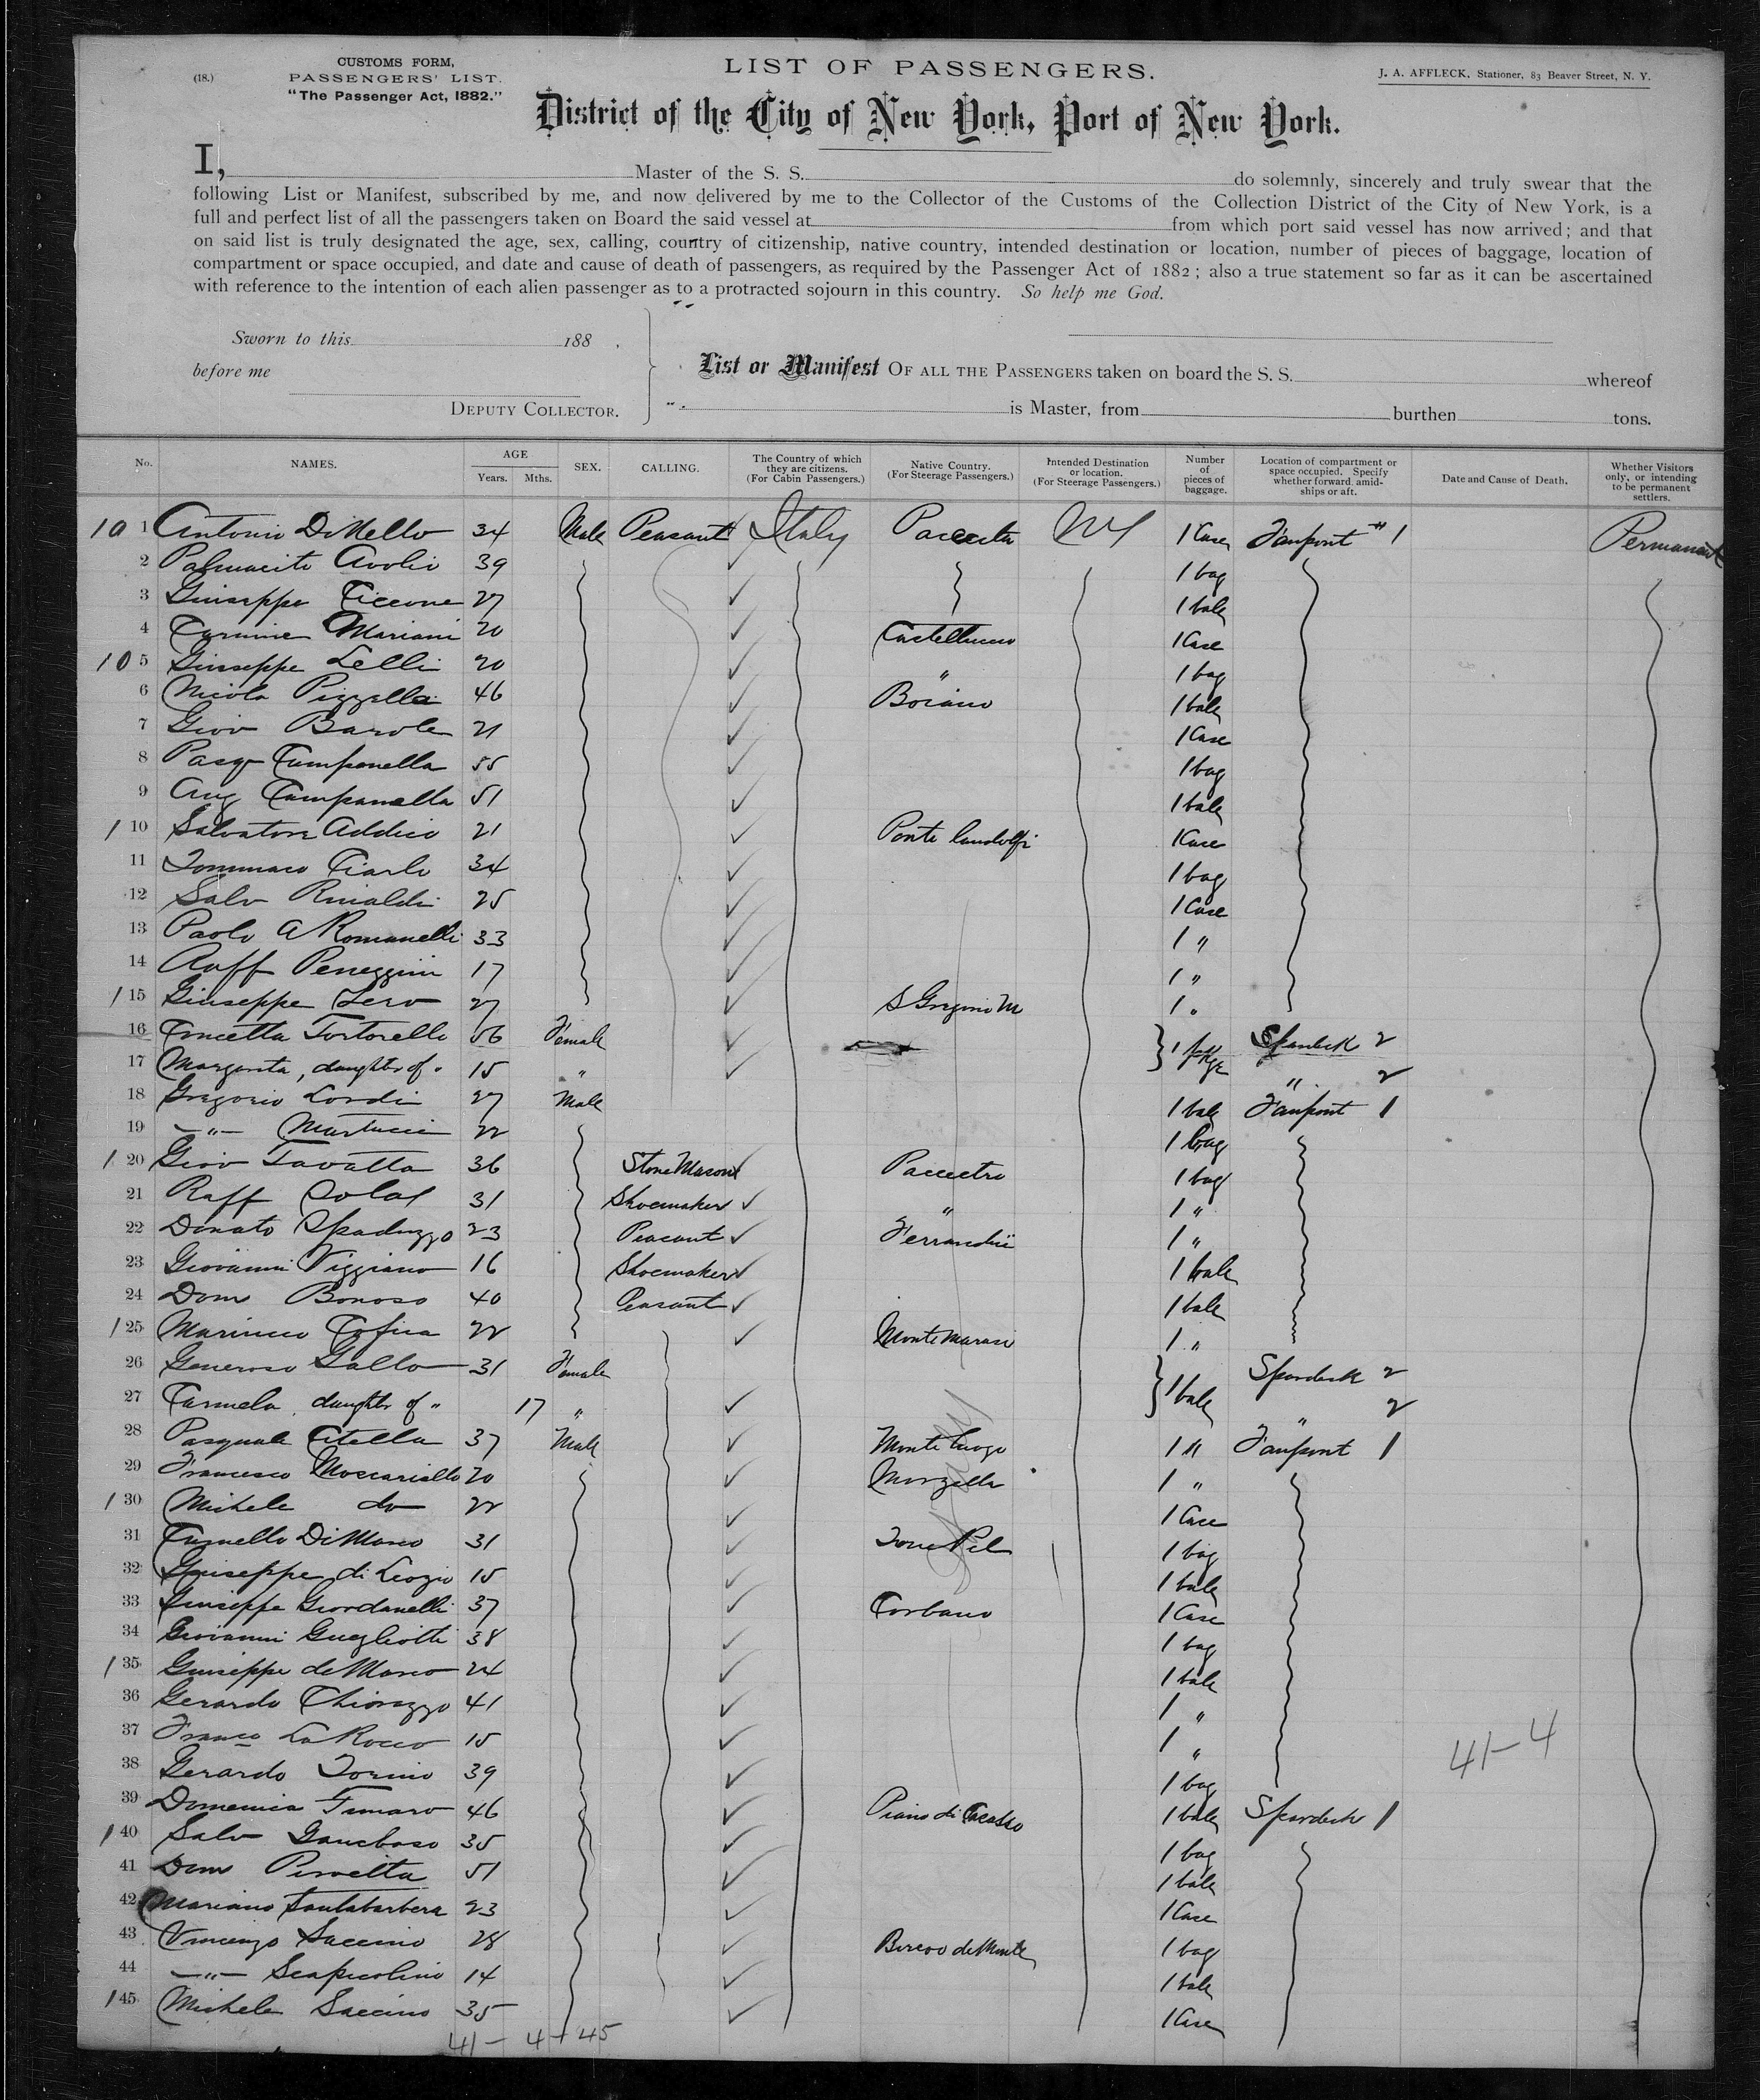 (18.)
CUSTOMS FORM,
PASSENGERS' LIST.
"The Passenger Act, 1882."
LIST OF PASSENGERS.
J. A. AFFLECK, Stationer, 83 Beaver Street, N. Y.
District of the City of New York, Port of New York.
I, Master of the S. S. do solemnly, sincerely and truly swear that the
following List or Manifest, subscribed by me, and now delivered by me to the Collector of the Customs of the Collection District of the City of New York, is a
full and perfect list of all the passengers taken on Board the said vessel at from which port said vessel has now arrived; and that
on said list is truly designated the age, sex, calling, country of citizenship, native country, intended destination or location, number of pieces of baggage, location of
compartment or space occupied, and date and cause of death of passengers, as required by the Passenger Act of 1882; also a true statement so far as it can be ascertained
with reference to the intention of each alien passenger as to a protracted sojourn in this country. So help me God.
Sworn to this 188
before me
DEPUTY COLLECTOR.
List or Manifest OF ALL THE PASSENGERS taken on board the S. S. whereof
is Master, from burthen tons.
No. NAMES. AGE Years. Mths. SEX. CALLING. The Country of which they are citizens. (For Cabin Passengers.) Native Country. (For Steerage Passengers.) Intended Destination or location. (For Steerage Passengers.) Number of pieces of baggage. Location of compartment or space occupied. Specify whether forward, amidships or aft. Date and Cause of Death. Whether Visitors only, or intending to be permanent settlers.
10 1 Antonio DiMello 34 Male Peasant Italy NY 1 Case #1 Permanent
2 Avolio 39 1 bag
3 Giuseppe Ciccone 27 1 bale
4 Carmine Mariani 20 Castelluccio 1 Case
10 5 Giuseppe Lelli 20 " 1 bag
6 Nicola Pizzella 46 Boiano 1 bale
7 Giov Barole 21 1 Case
8 Pasq Camponella 55 1 bag
9 Ang Campanella 51 1 bale
1 10 Salvatore Addico 21 Ponte landolfi 1 Case
11 Tommaso Ciarlo 34 1 bag
12 Salv Rinaldi 25 1 Case
13 Paolo A Romanelli 33 1 "
14 Raff 17 1 "
1 15 Giuseppe Lero 27 S Gregorio M 1 "
16 Concetta Tortorello 56 Female 1 pkge Spardeck 2
17 Margerita, daughter of " 15 " " 2
18 Gregorio Lordi 27 Male 1 bale 1
19 —"— Martucci 22 1 bag
1 20 Giov Tavatta 36 Stone Mason 1 bag
21 Raff 31 Shoemaker " 1 "
22 Donato Spaduzzo 23 Peasant 1 "
23 Giovanni Viggiano 16 Shoemaker 1 bale
24 Dom Bonoso 40 Peasant 1 bale
1 25 22 1 "
26 Generoso Gallo 31 Female 1 bale Spardeck 2
27 Carmela, daughter of " 17 " " 2
28 Pasquale Citella 37 Male 1 " 1
29 Francesco Moscariello 20 Morzella 1 "
1 30 Michele do 22 1 Case
31 DiMarco 31 1 bag
32 Giuseppe di 15 1 bale
33 Giuseppe Giordanelli 37 Corbano 1 Case
34 Giovanni Gugliotti 38 1 bag
1 35 Giuseppe deMarco 24 1 bale
36 Gerardo Chiorazzo 41 1 "
37 Franco LaRocco 15 1 "
38 Gerardo Torino 39 1 bag
41-4
39 Domenica 46 1 bale Spardeck 1
1 40 Salv 35 1 bag
41 Dom 51 1 bale
42 Mariano Santabarbera 23 1 Case
43 Vincenzo Saccino 28 1 bag
44 —"— Scapicolino 14 1 bale
1 45 Michele Saccino 35 1 Case
41 - 4 + 45